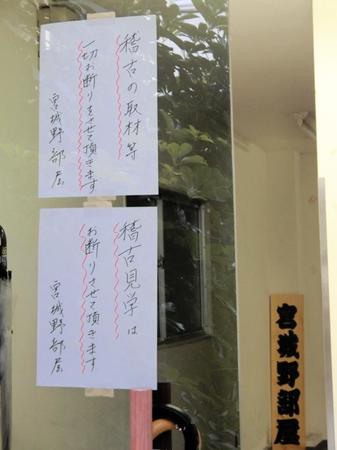 稽古の取材等
一切お断りをさせて頂きます
宮城野部屋
稽古見学は
お断りさせて頂きます
宮城野部屋
宮城野部屋